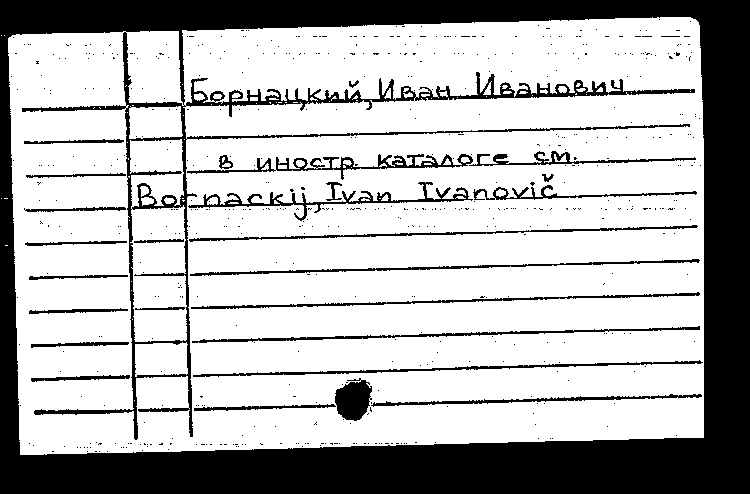 Борнацкий, Иван Иванович
в иностр каталоге см.
Bornackij, Ivan Ivanovič